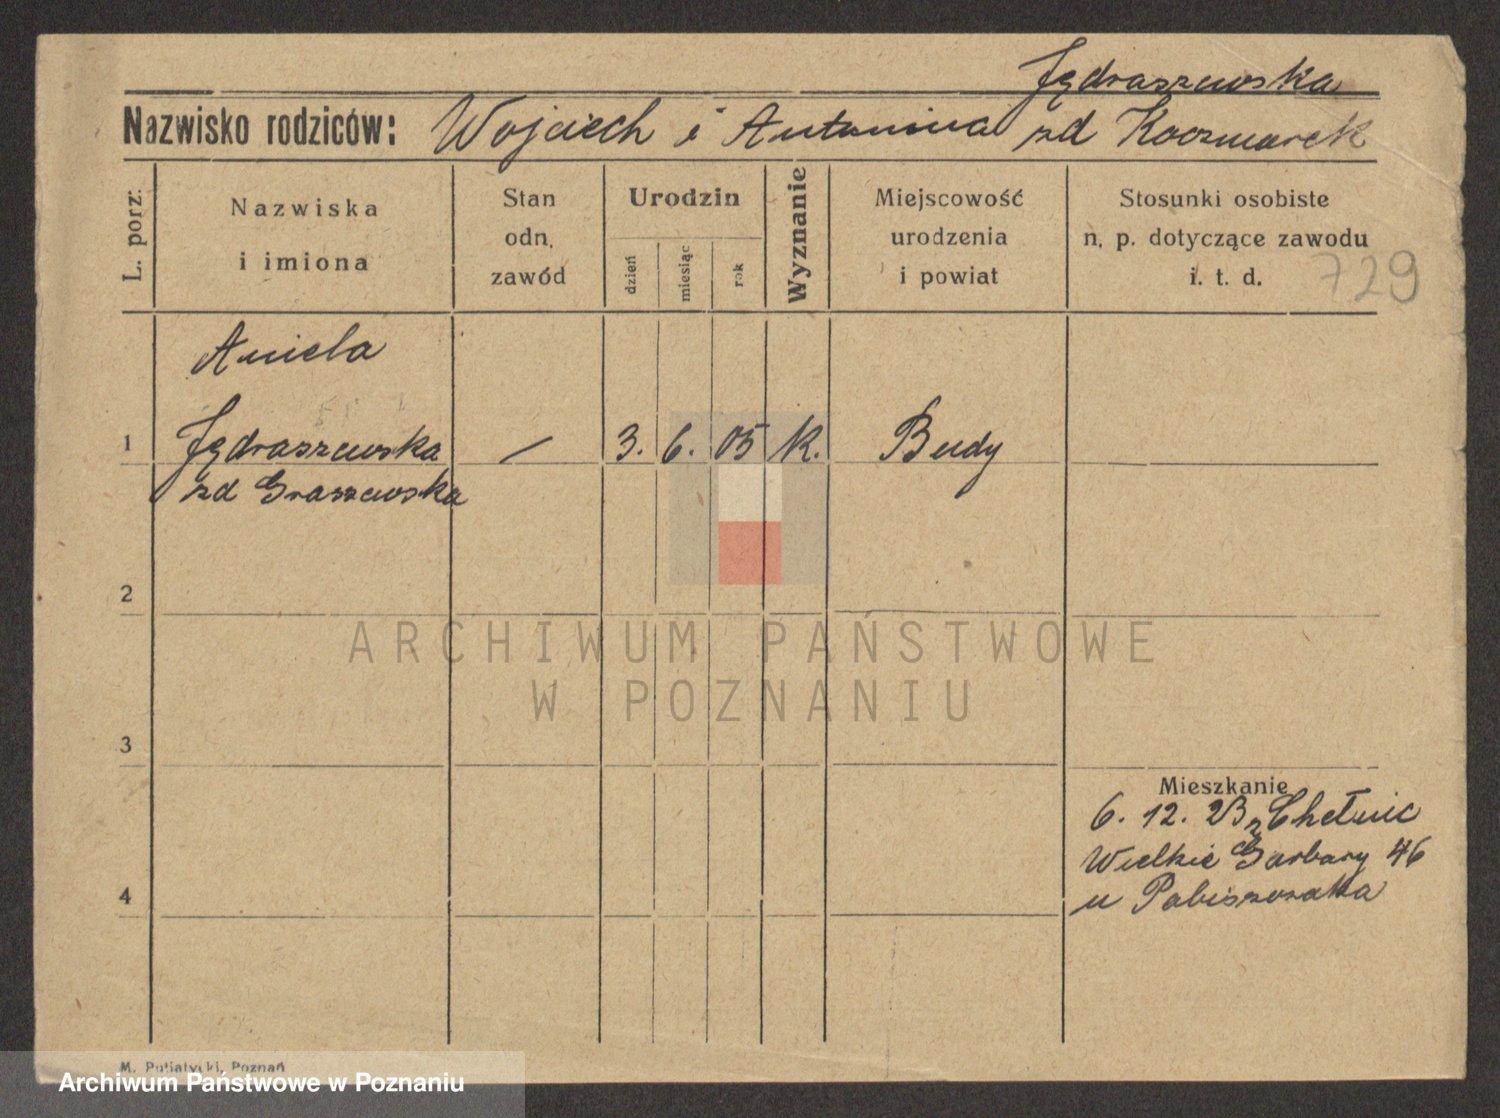 Jędraszewska
Nazwisko rodziców: Wojciech i Antonina zd Kaczmarek
L. porz.
Nazwiska
i imiona
Stan
odn.
zawód
Urodzin
dzień
miesiąc
rok
Wyznanie
Miejscowość
urodzenia
i powiat
Stosunki osobiste
n. p. dotyczące zawodu
i. t. d.
729
Aniela
1 Jędraszewska — 3. 6. 05 K. Budy
zd Graszewska
2
3
Mieszkanie
6. 12. 23 z Chełmic
Wielkie Garbary 46
4
u Pabiszczaka
M. Putiatycki, Poznań
ARCHIWUM PAŃSTWOWE
W POZNANIU
Archiwum Państwowe w Poznaniu